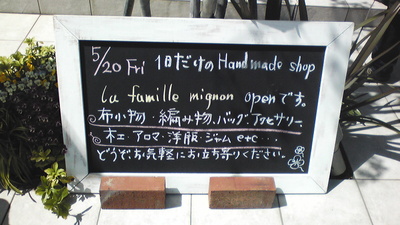 5/20 Fri 1日だけの Handmade shop
la famille mignon openです。
布小物・編み物、バッグ、アクセサリー
木工・アロマ・洋服・ジャム etc・・・
どうぞお気軽にお立ち寄りください。